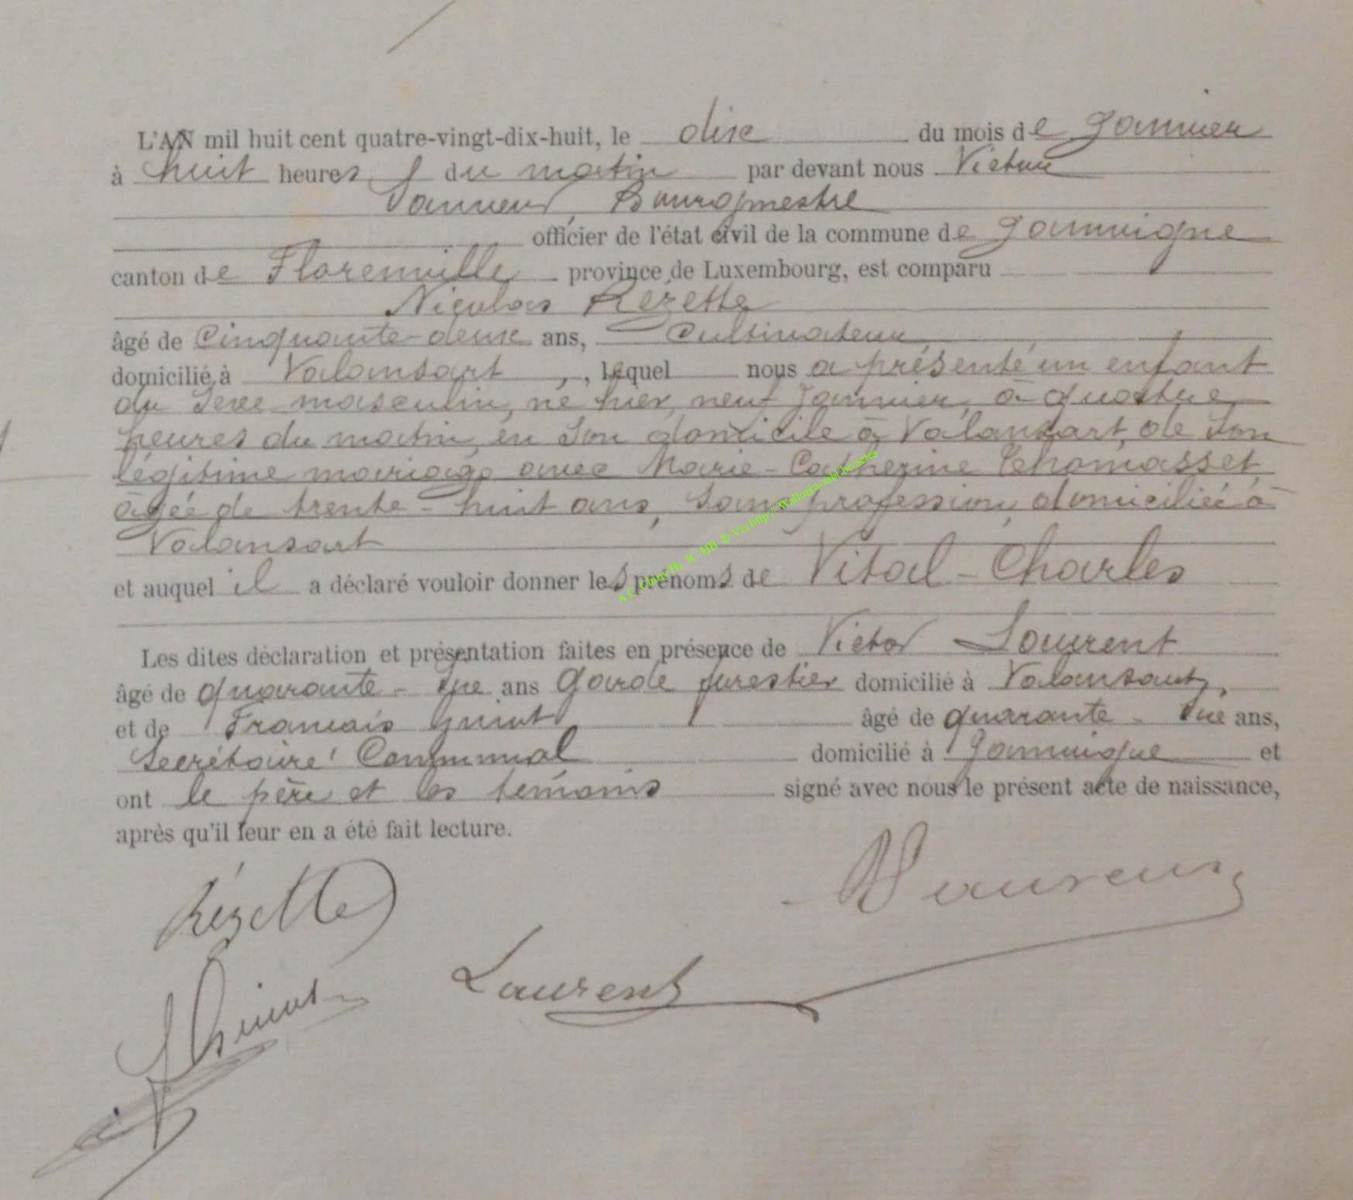 L'AN mil huit cent quatre-vingt-dix-huit, le dix du mois de Janvier
à huit heures du matin par devant nous Victor
Bourgmestre
officier de l'état civil de la commune de Jamoigne
canton de Florenville province de Luxembourg, est comparu
Nicolas Rézette
âgé de Cinquante-deux ans, Cultivateur
domicilié à Valansart, lequel nous a présenté un enfant
du sexe masculin, né hier, neuf Janvier, à quatre
heures du matin, en son domicile à Valansart, de son
légitime mariage avec Marie-Catherine Thomasset,
âgée de trente-huit ans, sans profession, domiciliée à
Valansart
et auquel il a déclaré vouloir donner les prénoms de Vital-Charles
Les dites déclaration et présentation faites en présence de Victor Laurent
âgé de quarante- ans Garde forestier domicilié à Valansart,
et de François âgé de quarante- ans,
Secrétaire Communal domicilié à Jamoigne et
ont le père et les témoins signé avec nous le présent acte de naissance,
après qu'il leur en a été fait lecture.
Rézette
Laurent